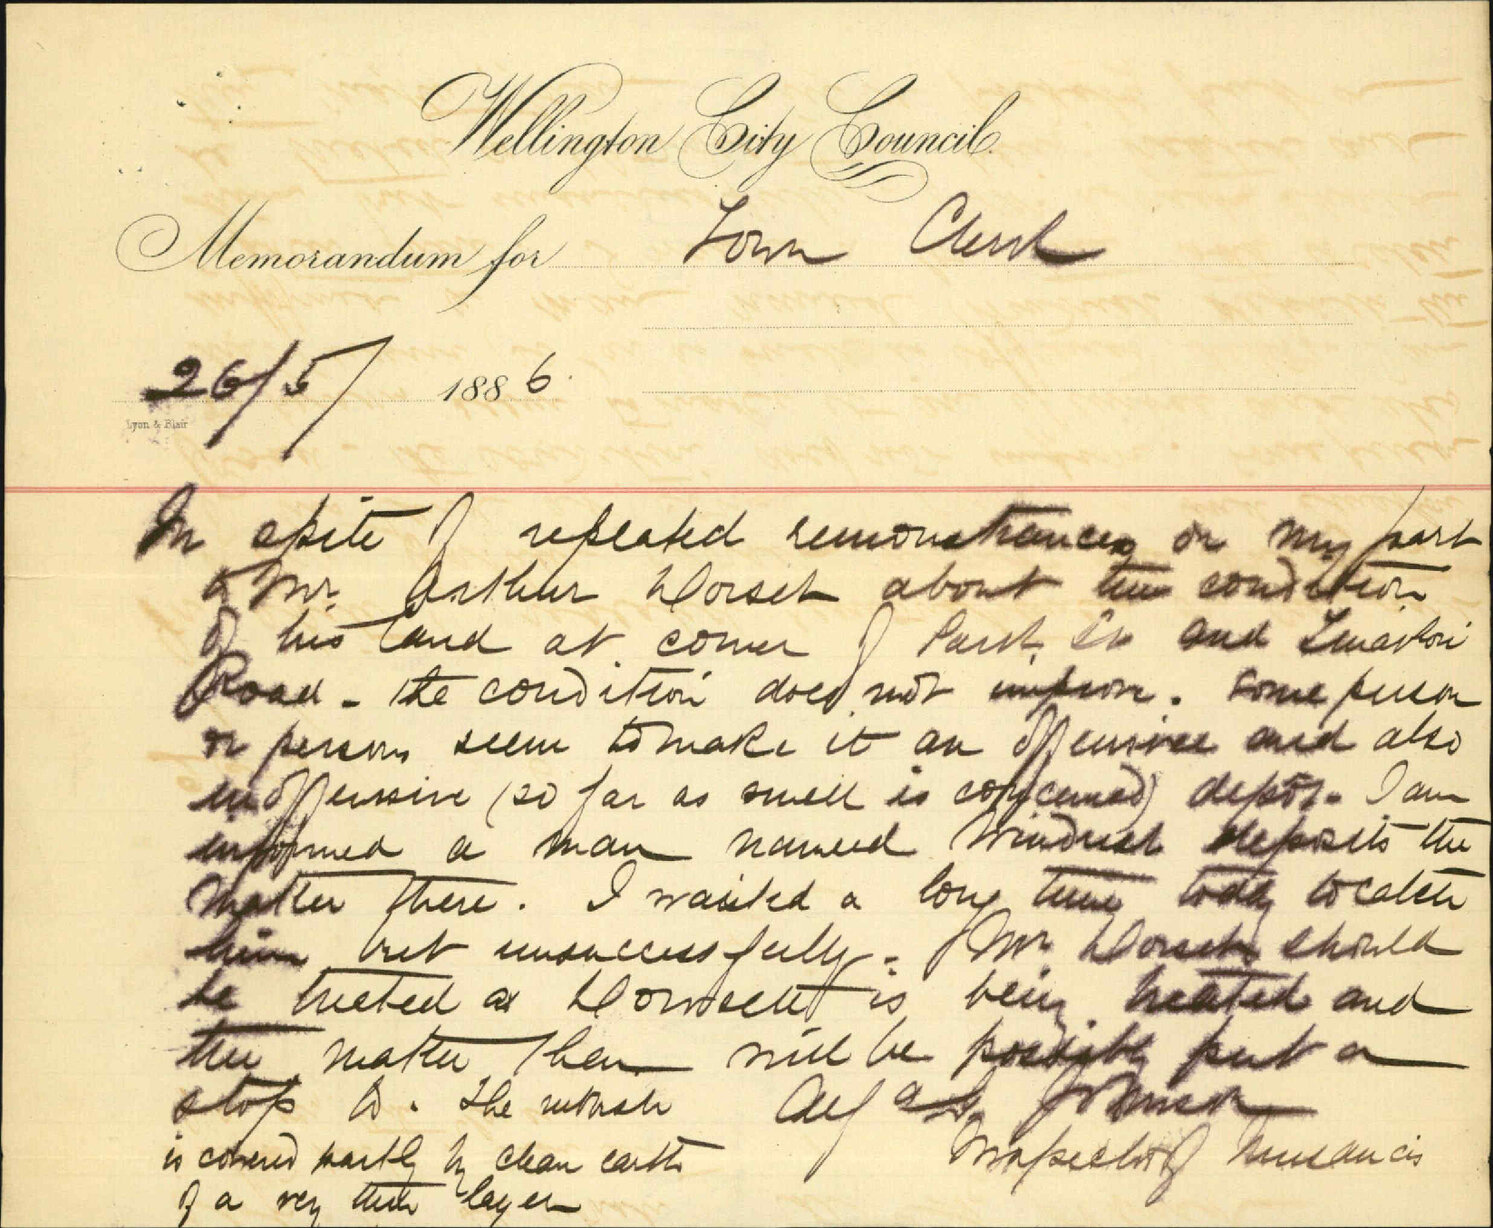 Wellington City Council.
Memorandum for Town Clerk
26/5/ 1886.
Lyon & Blair
In spite of repeated remonstrances on my part
to Mr. Arthur Dorset about the condition
of his land at corner of Park St and Tinakori
Road - the condition does not improve. Some person
or persons seem to make it an offensive and also
inoffensive (so far as smell is concerned) depôt. I am
informed a man named deposits the
matter there. I waited a long time today to catch
him but unsuccessfully. Mr Dorset should
be treated as is being treated and
the matter then will be possibly put a
stop to. The
Johnson
is covered partly by clean earth
Inspector of Nuisances
of a very thin layer